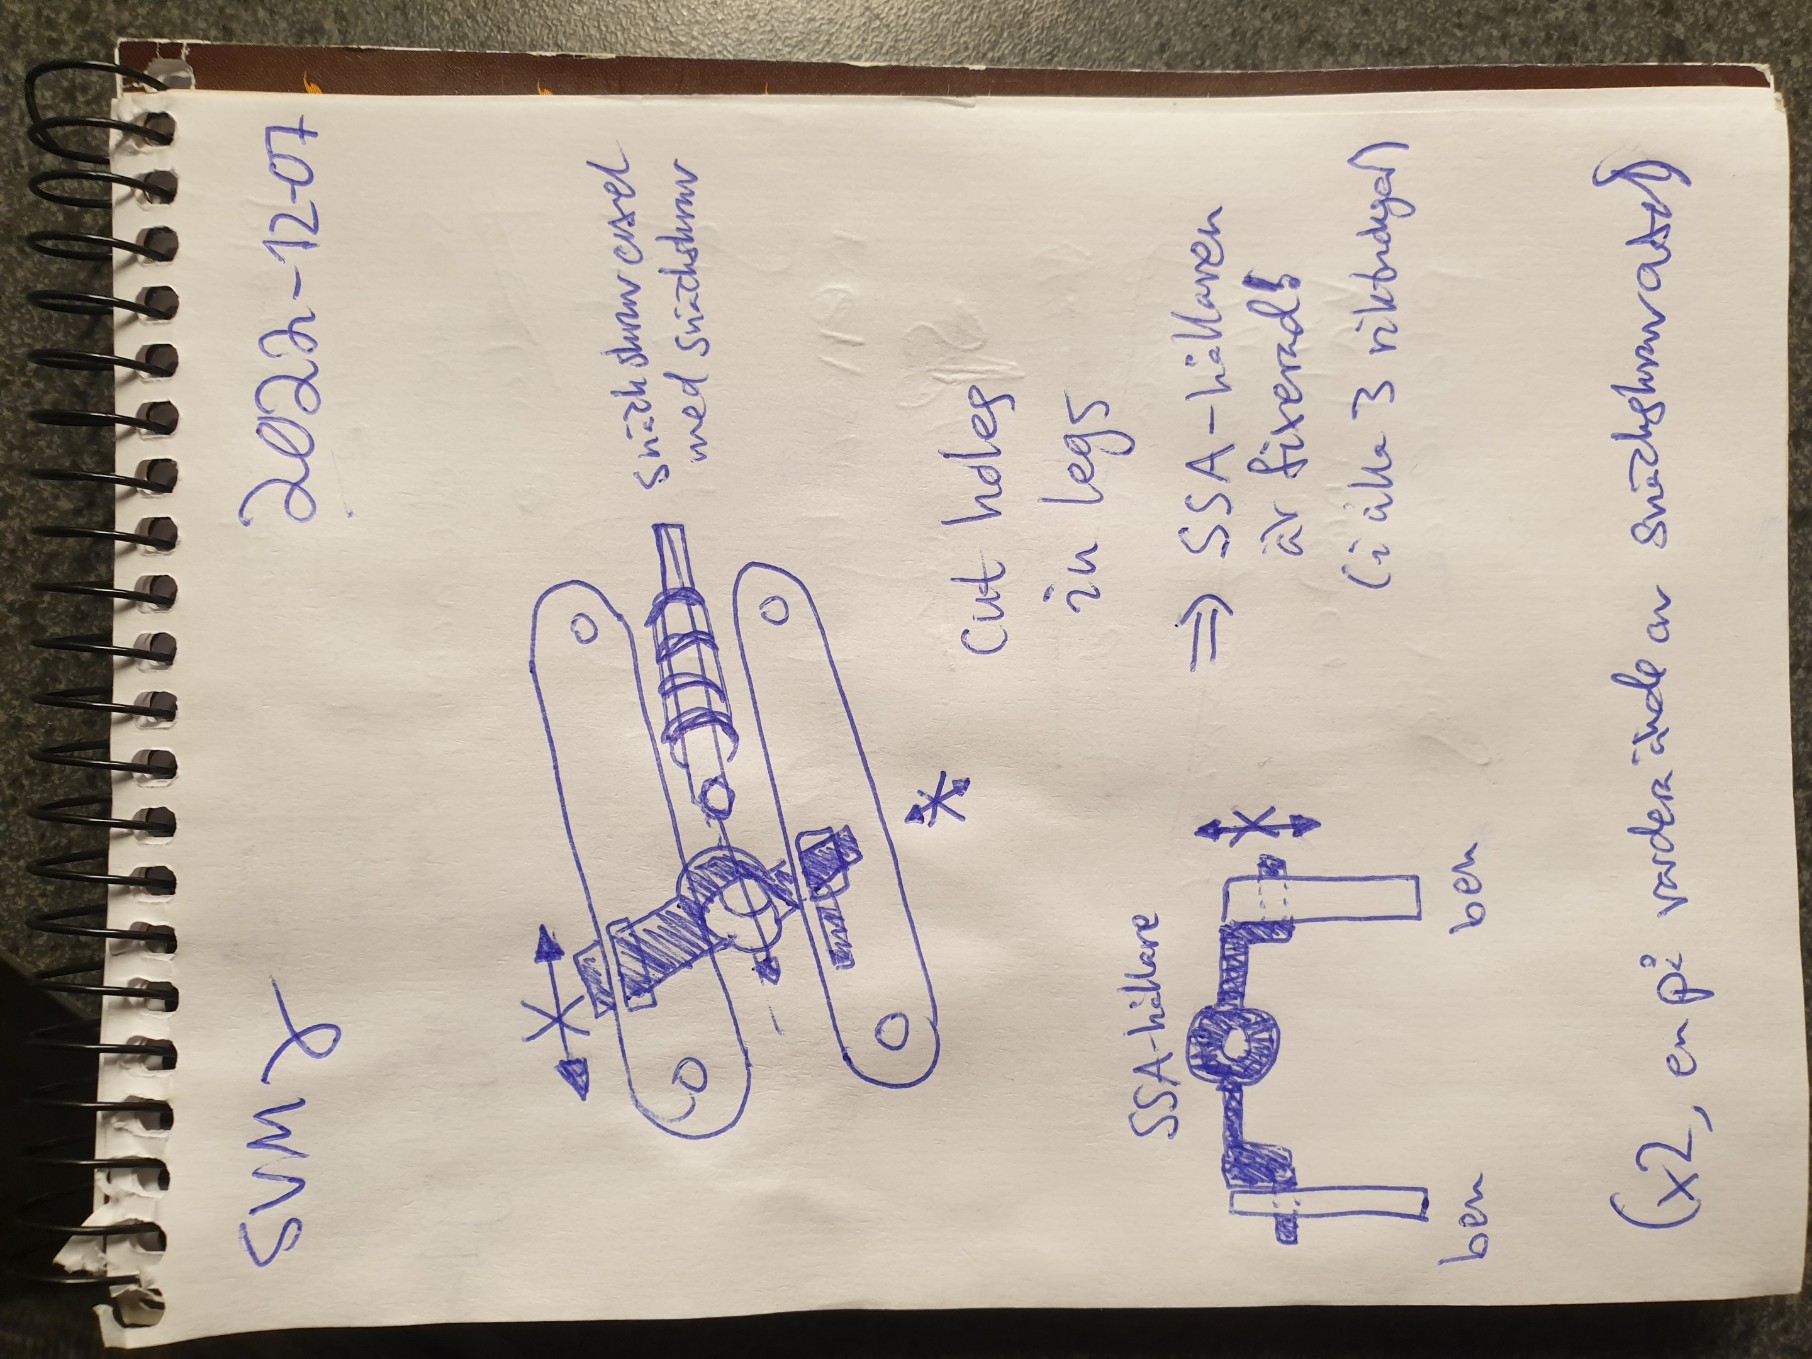 SVM
2022-12-07
snäckskruvaxel
med snäckskruv
cut holes
in legs
SSA-hållare
⇒ SSA-hållaren
är fixerad!
(i alla 3 riktningar)
ben
ben
(x2, en på vardera ände av snäckskruvaxel)